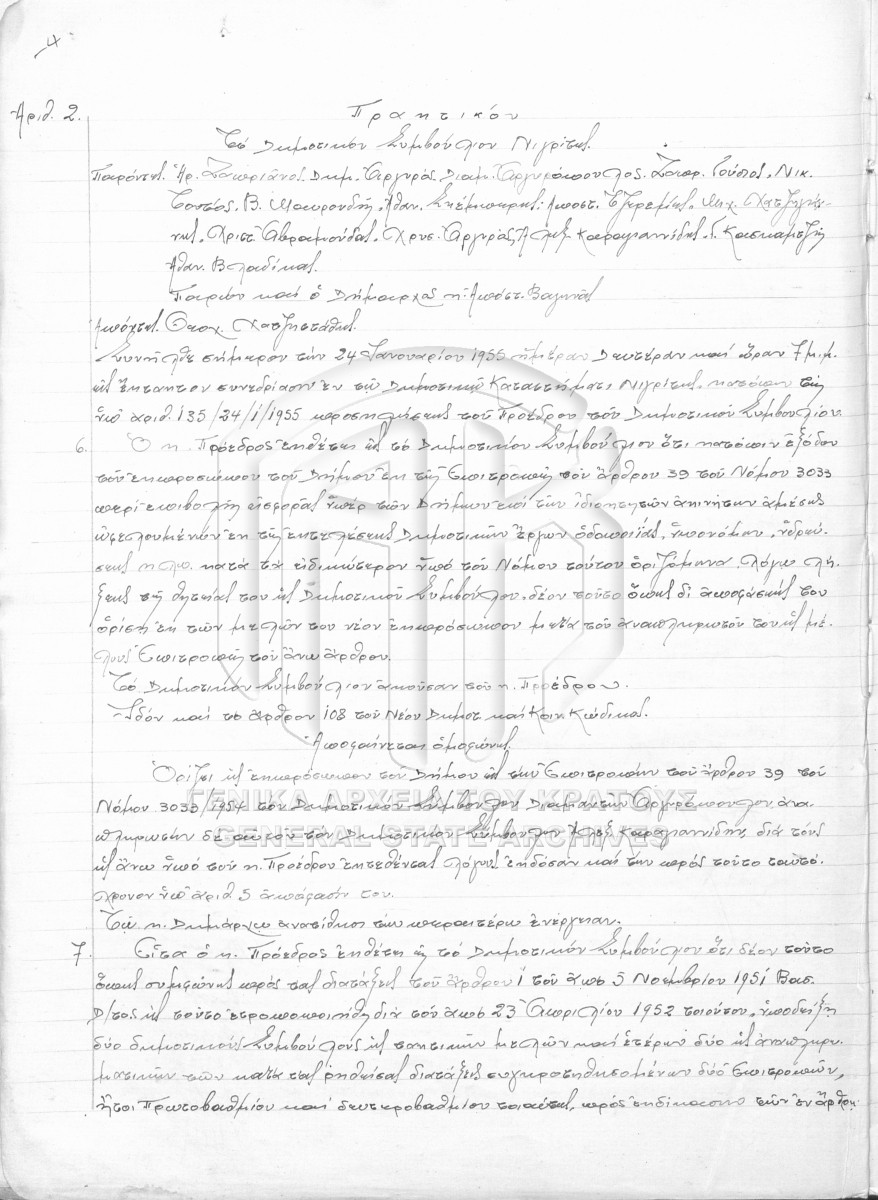 4
Αριθ. 2.
Πρακτικόν
Τό Δημοτικόν Συμβούλιον Νιγρίτης.
Παρόντες. Δημ. Αργυρός. Διαμ. Αργυρόπουλος. Νικ.
Β. Μαυρουδής. Αθαν. Αποστ. Μιχ. Χατζηγιάν-
νης. Χριστ. Αβραμούδας. Χρυσ. Αργυρός. Αλεξ. Καραγιαννίδης. Γ.
Αθαν. Βλαδίκας.
Παρών καί ὁ Δήμαρχος κ. Αποστ.
Απόντες. Θεοχ. Χατζηστάθης.
Συνῆλθε σήμερον τήν 24 Ιανουαρίου 1955 ἡμέραν Δευτέραν καί ὥραν 7 μ.μ.
εἰς ἔκτακτον συνεδρίασιν ἐν τῷ Δημοτικῷ Καταστήματι Νιγρίτης κατόπιν τῆς
ὑπ' ἀριθ. 135/24/1/1955 προσκλήσεως τοῦ Προέδρου τοῦ Δημοτικοῦ Συμβουλίου.
6. Ὁ κ. Πρόεδρος ἐκθέτει εἰς τό Δημοτικόν Συμβούλιον ὅτι κατόπιν ἐξόδου
τοῦ ἐκπροσώπου τοῦ Δήμου ἐκ τῆς Ἐπιτροπῆς τοῦ ἄρθρου 39 τοῦ Νόμου 3033
περί ἐπιβολῆς εἰσφορᾶς ὑπέρ τῶν Δήμων ἐπί τῶν ἰδιοκτητῶν ἀκινήτων ἀμέσως
ὠφελουμένων ἐκ τῆς ἐκτελέσεως Δημοτικῶν ἔργων ὁδοποιΐας, ὑπονόμων, ὑδρεύ-
σεως κ.λ.π. κατά τά εἰδικώτερον ὑπό τοῦ Νόμου τούτου ὁριζόμενα, λόγῳ λή-
ξεως τῆς θητείας του εἰς Δημοτικοῦ Συμβούλου, δέον τοῦτο ὅπως δι' ἀποφάσεώς του
ὁρίσῃ ἐκ τῶν μελῶν του νέον ἐκπρόσωπον μετά τοῦ ἀναπληρωτοῦ του εἰς μέ-
λους Ἐπιτροπῆς τοῦ ἄνω ἄρθρου.
Τό Δημοτικόν Συμβούλιον ἀκοῦσαν τοῦ κ. Προέδρου.
Ἰδόν καί τό ἄρθρον 108 τοῦ Νέου Δημοτ. καί Κοιν. Κώδικος.
Ἀποφαίνεται ὁμοφώνως
Ὁρίζει εἰς ἐκπρόσωπον τοῦ Δήμου εἰς τήν Ἐπιτροπήν τοῦ ἄρθρου 39 τοῦ
Νόμου 3033/1954 τόν Δημοτικόν Σύμβουλον Διαμαντήν Αργυρόπουλον, ἀνα-
πληρωτήν δέ αὐτοῦ τόν Δημοτικόν Σύμβουλον Αλεξ. Καραγιαννίδην, διά τούς
εἰς ἄνω ὑπό τοῦ κ. Προέδρου ἐκτεθέντας λόγους, ἐκδόσαν καί τήν πρός τοῦτο ταὐτό-
χρονον ὑπ' ἀριθ. 5 ἀπόφασίν του.
Τῷ κ. Δημάρχῳ ἀνατίθησι τήν περαιτέρω ἐνέργειαν.
7. Εἶτα ὁ κ. Πρόεδρος ἐκθέτει εἰς τό Δημοτικόν Συμβούλιον ὅτι δέον τοῦτο
ὅπως συμφώνως πρός τάς διατάξεις τοῦ ἄρθρου 1 τοῦ ἀπό 5 Νοεμβρίου 1951 Βασ.
Δ/τος εἰς τοῦτο ἐτροποποιήθη διά τοῦ ἀπό 23 Απριλίου 1952 τοιούτου, ὑποδείξῃ
δύο δημοτικούς Συμβούλους εἰς τακτικῶν μελῶν καί ἑτέρων δύο εἰς ἀναπληρω-
ματικῶν τῶν κατά τάς ῥηθείσας διατάξεις συγκροτηθησομένων δύο Ἐπιτροπῶν,
ἤτοι Πρωτοβαθμίου καί δευτεροβαθμίου τοιαύτης, πρός ἐκδίκασιν τῶν ἐν ἄρθρῳ
ΓΕΝΙΚΑ ΑΡΧΕΙΑ ΤΟΥ ΚΡΑΤΟΥΣ
GENERAL STATE ARCHIVES